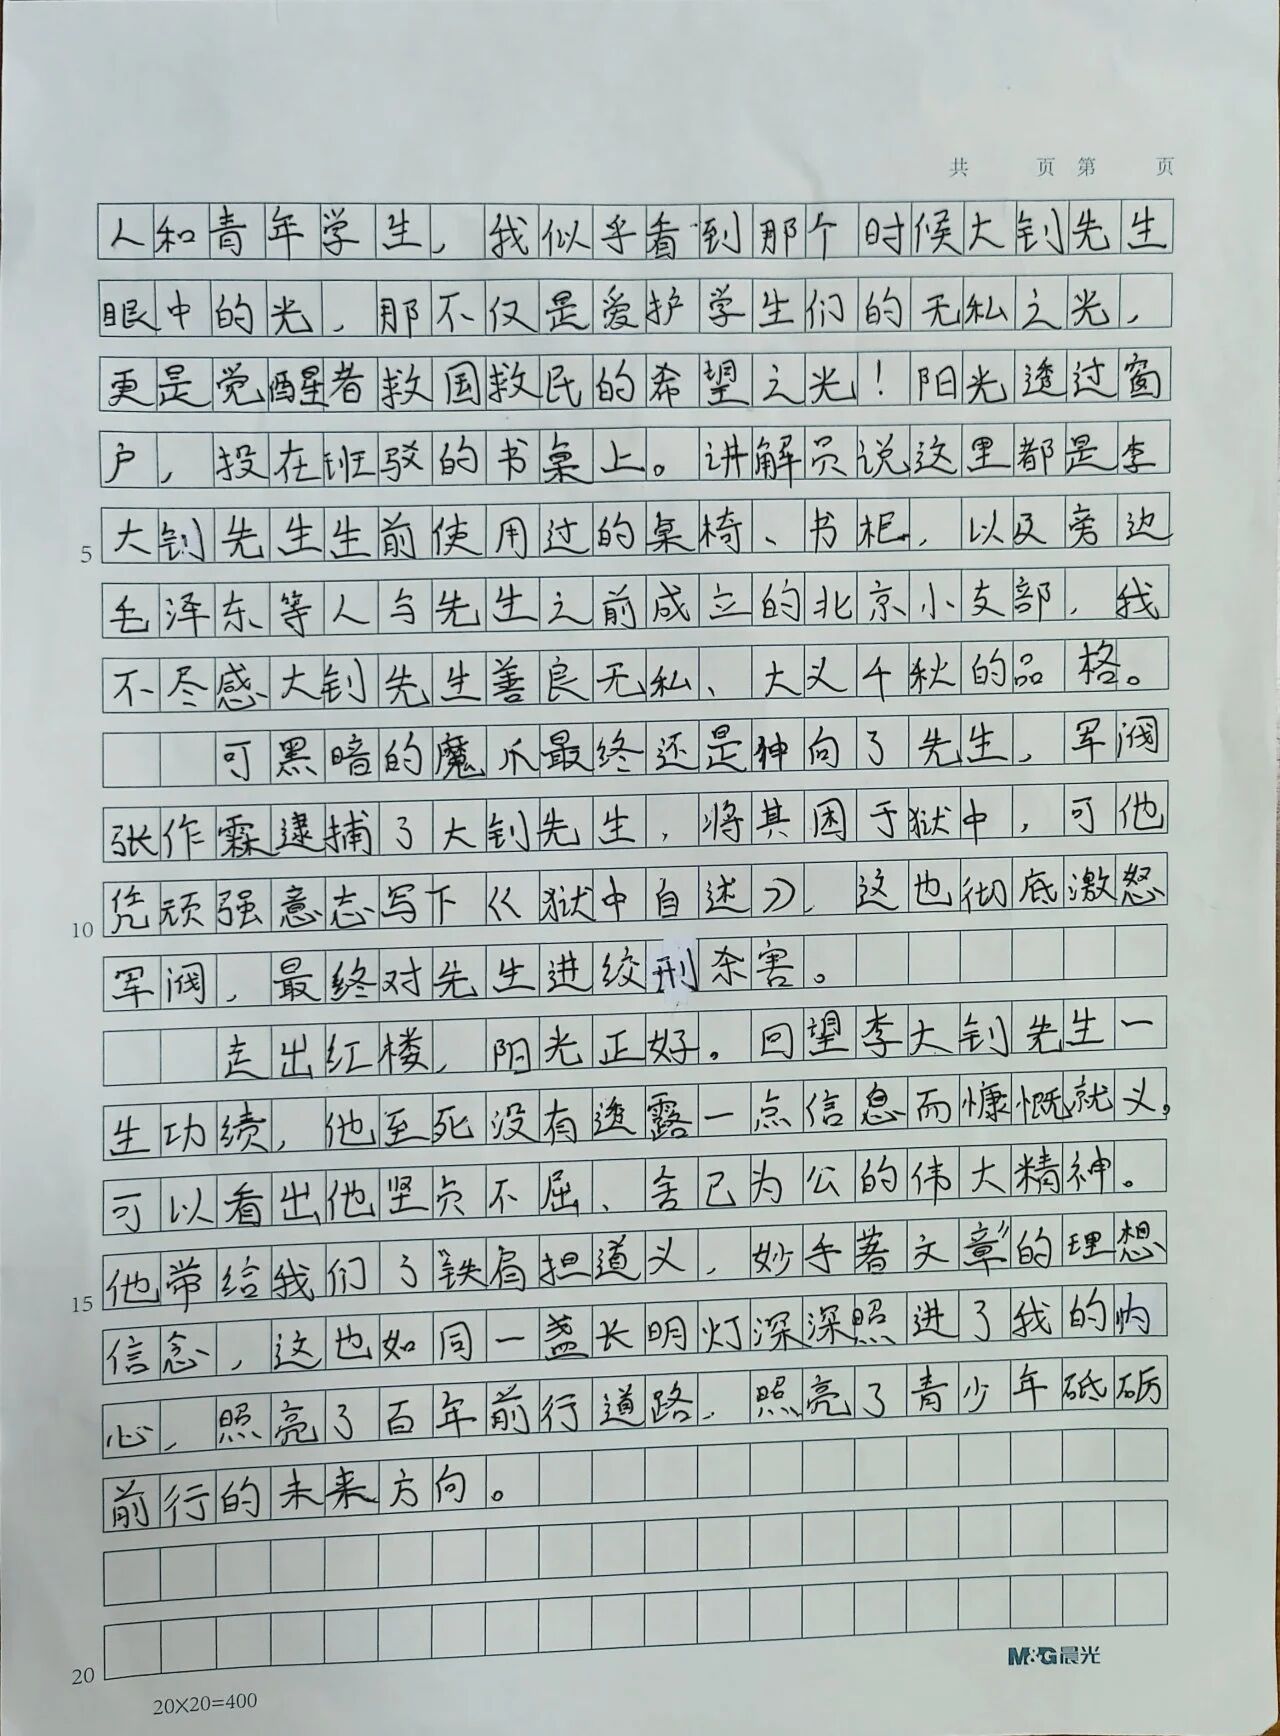 共 页 第 页
人和青年学生，我似乎看到那个时候大钊先生
眼中的光，那不仅是爱护学生们的无私之光，
更是觉醒者救国救民的希望之光！阳光透过窗
户，投在班驳的书桌上。讲解员说这里都是李
大钊先生生前使用过的桌椅、书柜，以及旁边
5
毛泽东等人与先生之前成立的北京小支部，我
不尽感大钊先生善良无私、大义千秋的品格。
可黑暗的魔爪最终还是伸向了先生，军阀
张作霖逮捕了大钊先生，将其困于狱中，可他
凭顽强意志写下《狱中自述》，这也彻底激怒
10
军阀，最终对先生进绞刑杀害。
走出红楼，阳光正好。回望李大钊先生一
生功绩，他至死没有透露一点信息而慷慨就义。
可以看出他坚贞不屈、舍己为公的伟大精神。
他带给我们了“铁肩担道义，妙手著文章”的理想
15
信念，这也如同一盏长明灯深深照进了我的内
心，照亮了百年前行道路，照亮了青少年砥砺
前行的未来方向。
20
20X20=400
M&G晨光